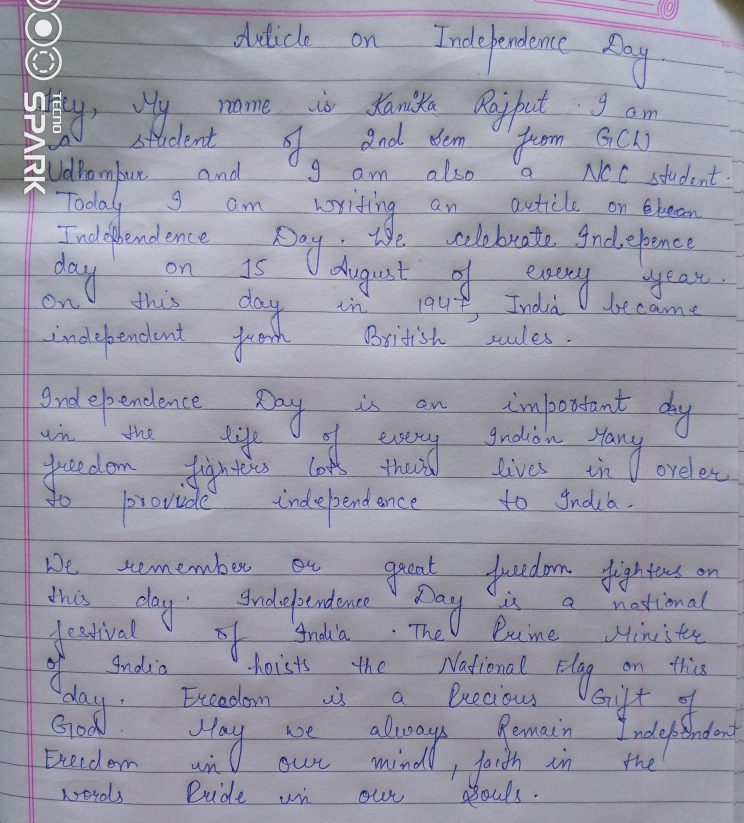 Article on Independence Day.
Hey, My name is Kanika Rajput. I am
a student of 2nd sem from GCW
Udhampur and I am also a NCC student.
Today I am writing an article on
Independence Day. We celebrate Indepence
day on 15 August of every year.
On this day in 1947, India became
independent from British rules.
Independence Day is an important day
in the life of every Indian Many
freedom fighters lots their lives in order
to provide independence to India.
We remember or great freedom fighters on
this day. Independence Day is a national
festival of India. The Prime Minister
of India hoists the National Flag on this
day. Freedom is a Precious Gift of
God. May we always Remain Independent
Freedom in our mind, faith in the
words Pride in our Souls.
TECNO
SPARK